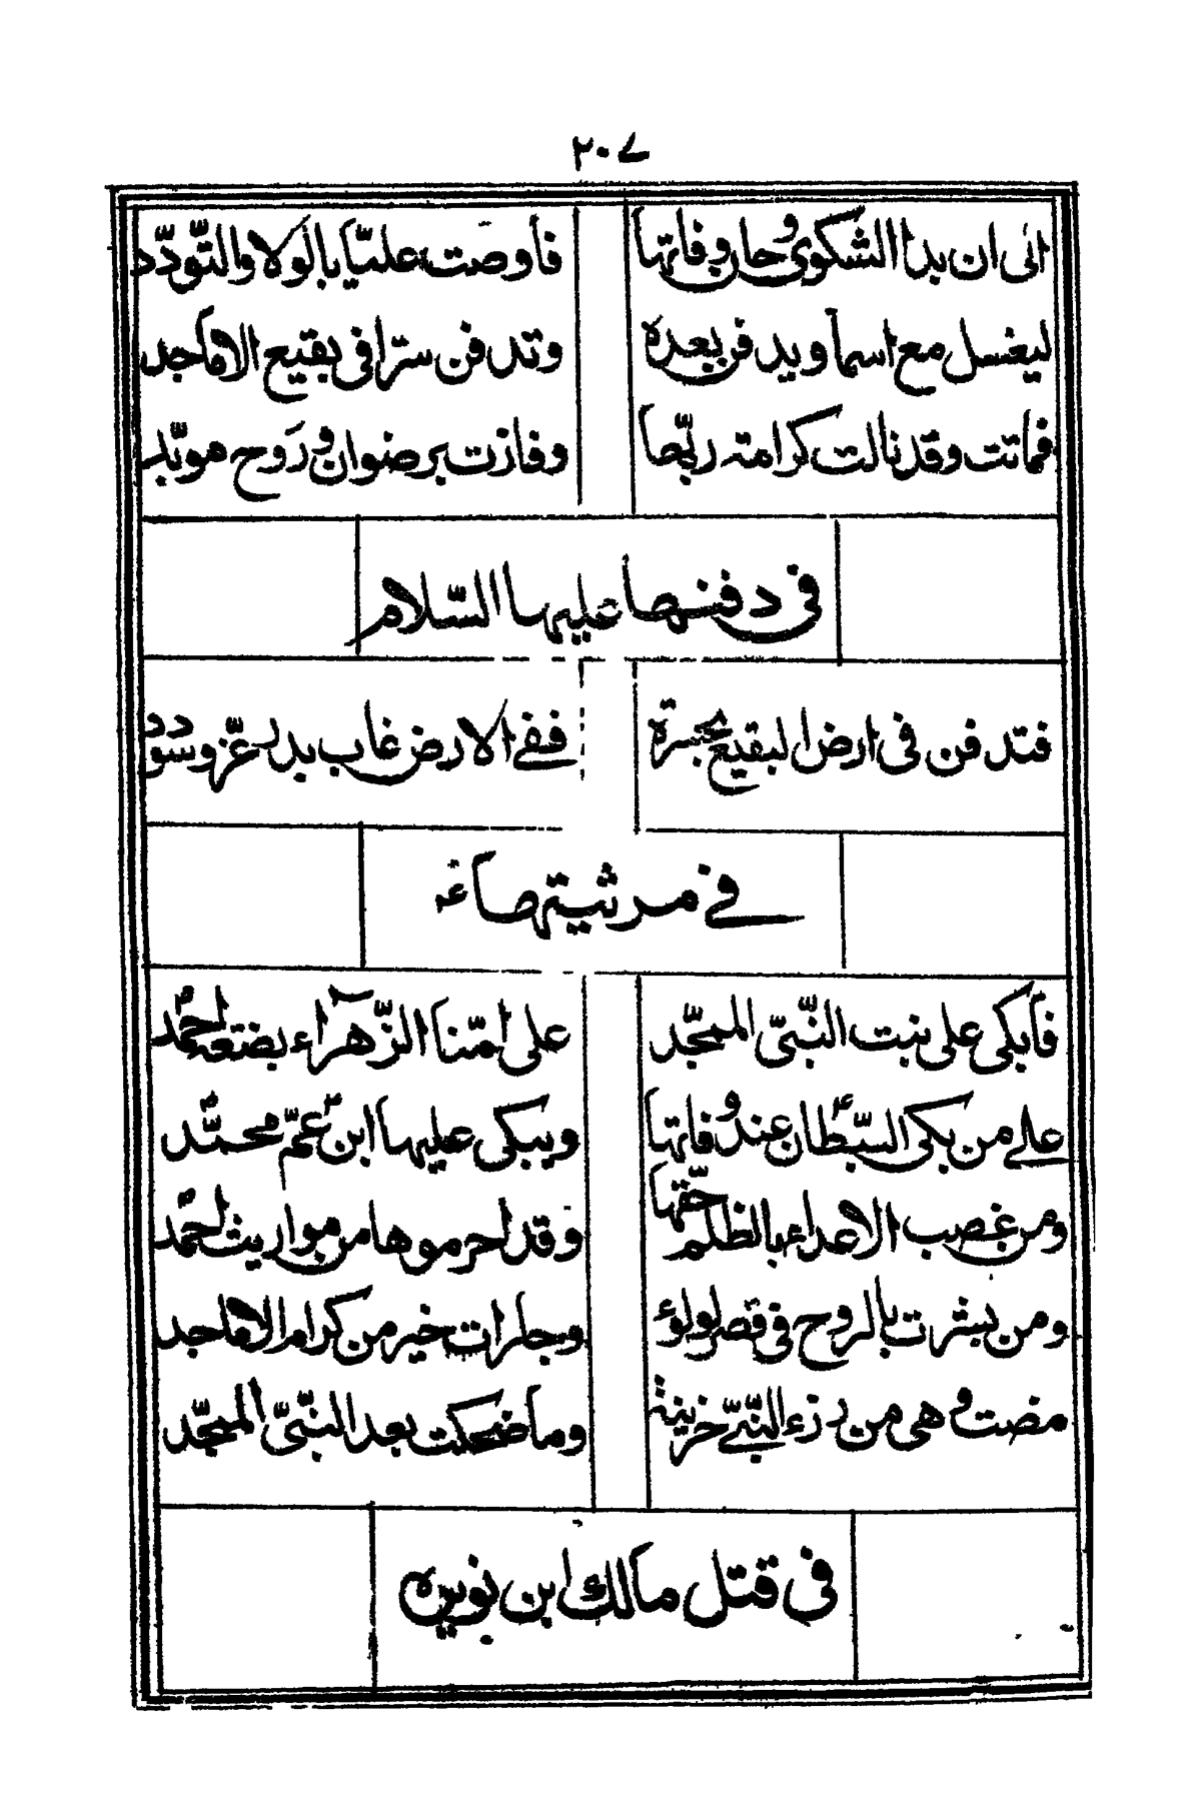 ٢٠٧
الى ان بدا الشكوى وحان وفاتها فأوصت عليّا بالولا والتّودّد
ليغسل مع اسما ويدفن بعده وتدفن سترا فى بقيع الاماجد
فماتت وقد نالت كرامته ربّها وفازت برضوان وروح مويّد
فى دفنها عليها السّلام
فتدفن فى ارض البقيع بحسرة ففے الارض غاب بدر عزّ وسودد
فے مرثيتها ع
فأبكى على بنت النّبىّ الممجّد على امّنا الزّهراء بضعة احمد
علے من بكى السّبطان عند وفاتها ويبكى عليها ابن عمّ محمّد
ومن غصب الاعداء بالظلم حقّها وقد احرموها من مواريث احمد
ومن بشرت بالروح فى قصر لولوء وجارات خير من كرام الاماجد
مضت وهى من رزء النّبىّ حزينة وما ضحكت بعد النّبىّ الممجّد
فى قتل مالك ابن نويره